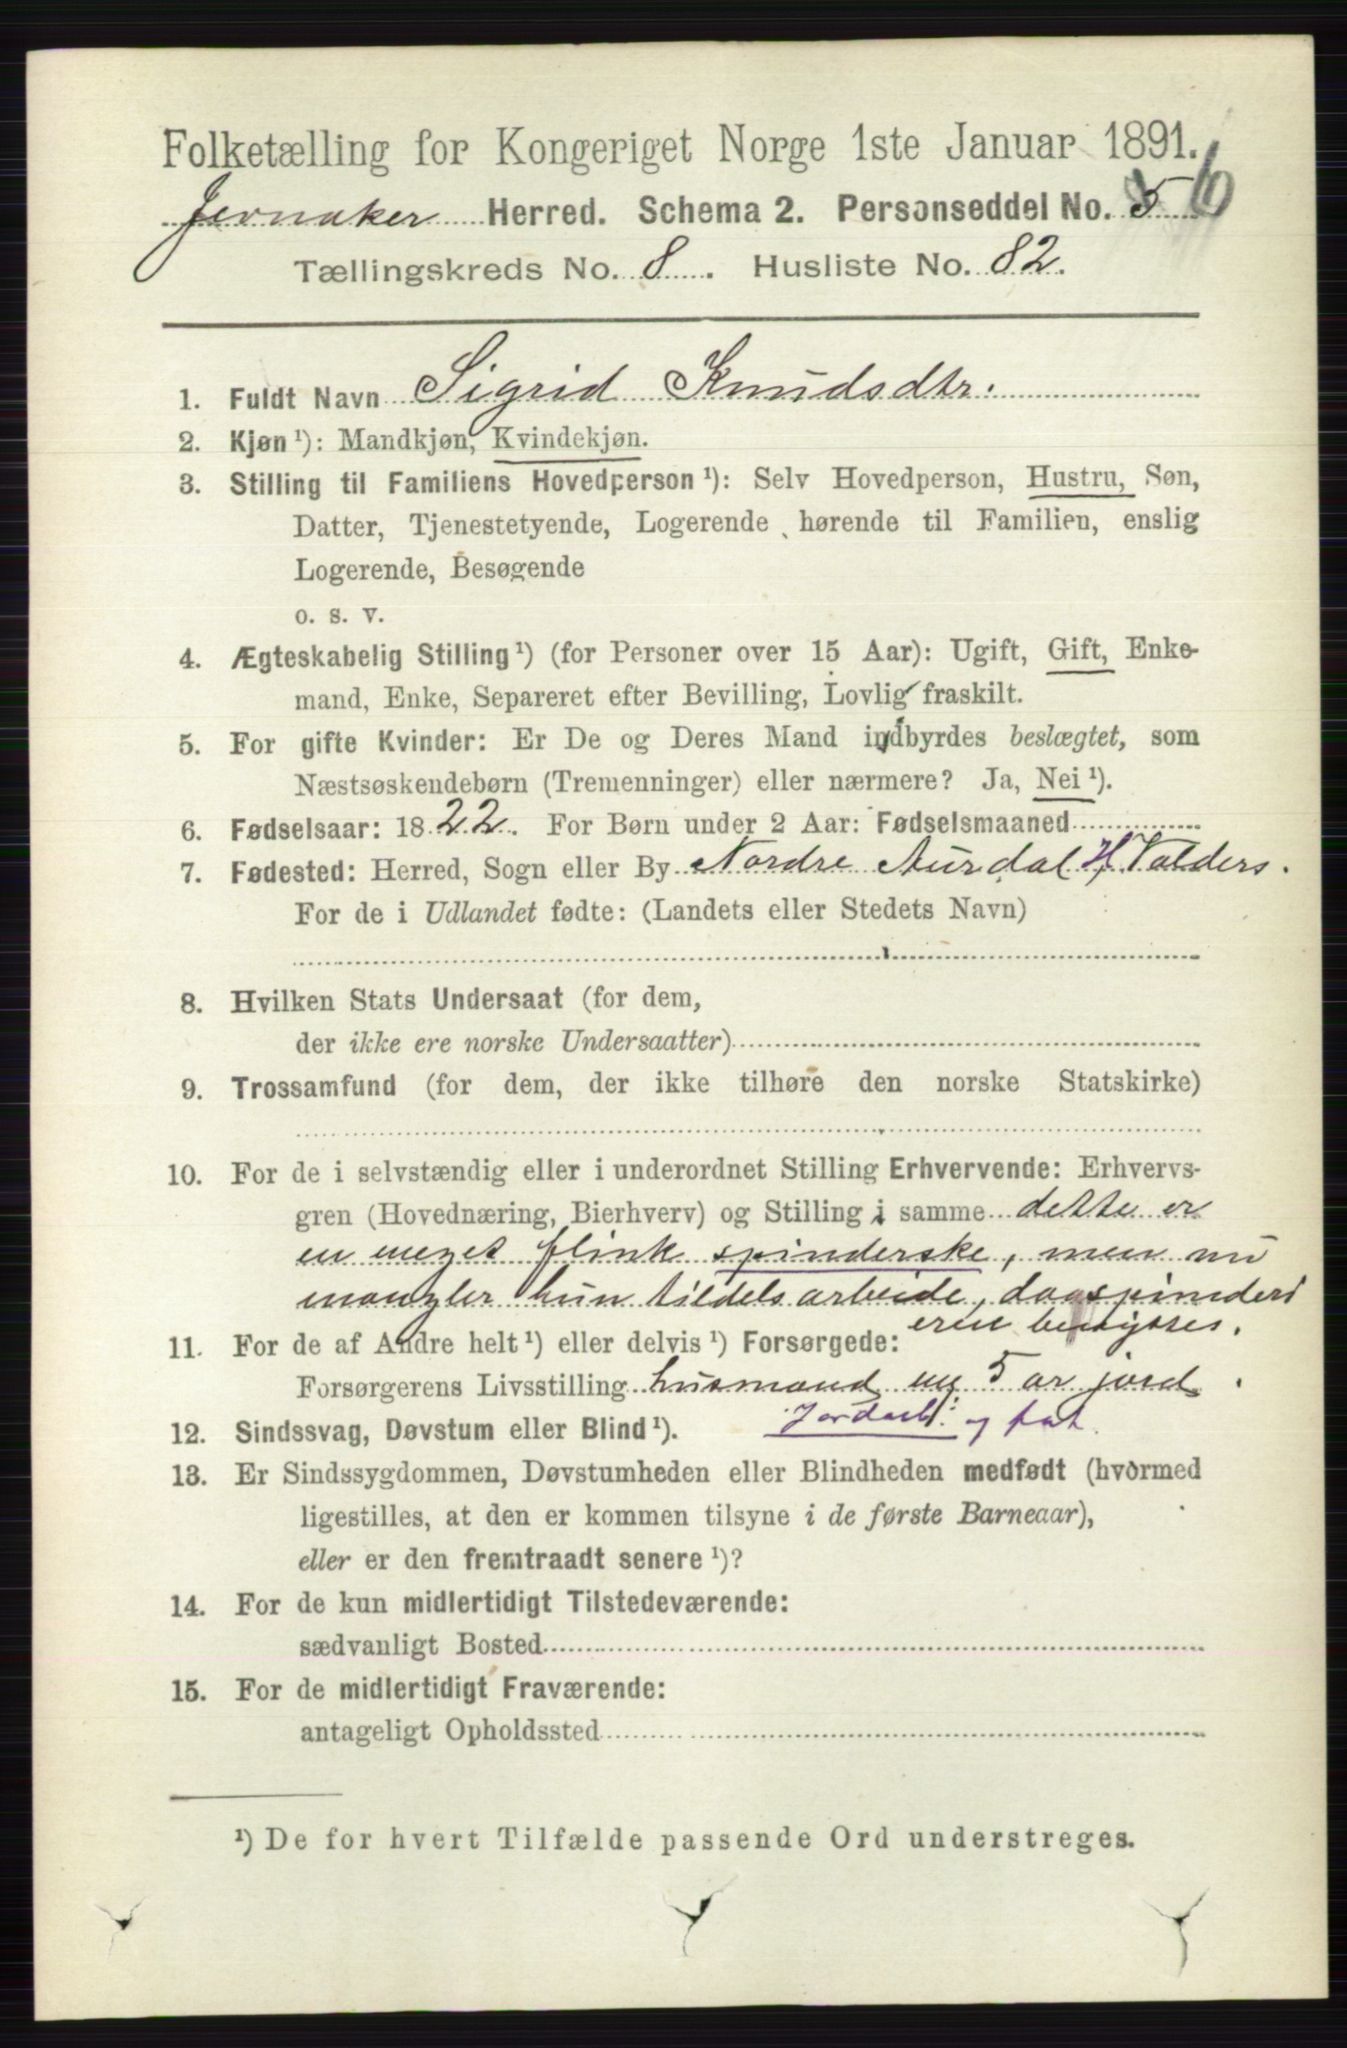 Folketælling for Kongeriget Norge 1ste Januar 1891.
Jevnaker Herred. Schema 2. Personseddel No. 5 6
Tællingskreds No. 8. Husliste No. 82.
1. Fuldt Navn Sigrid Knudsdtr.
2. Kjøn ¹): Mandkjøn, Kvindekjøn.
3. Stilling til Familiens Hovedperson ¹): Selv Hovedperson, Hustru, Søn,
Datter, Tjenestetyende, Logerende hørende til Familien, enslig
Logerende, Besøgende
o. s. v.
4. Ægteskabelig Stilling ¹) (for Personer over 15 Aar): Ugift, Gift, Enke-
mand, Enke, Separeret efter Bevilling, Lovlig fraskilt.
5. For gifte Kvinder: Er De og Deres Mand indbyrdes beslægtet, som
Næstsøskendebørn (Tremenninger) eller nærmere? Ja, Nei ¹).
6. Fødselsaar: 1822. For Børn under 2 Aar: Fødselsmaaned
7. Fødested: Herred, Sogn eller By Nordre Aurdal H Valders.
For de i Udlandet fødte: (Landets eller Stedets Navn)
8. Hvilken Stats Undersaat (for dem,
der ikke ere norske Undersaatter)
9. Trossamfund (for dem, der ikke tilhøre den norske Statskirke)
10. For de i selvstændig eller i underordnet Stilling Erhvervende: Erhvervs-
gren (Hovednæring, Bierhverv) og Stilling i samme dette er
en meget flink spinderske, men nu
mangler hun tildels arbeide, da spinderi
erne benyttes.
11. For de af Andre helt ¹) eller delvis ¹) Forsørgede:
Forsørgerens Livsstilling husmand 5 ar jord.
Jordarb: og fat.
12. Sindssvag, Døvstum eller Blind ¹).
13. Er Sindssygdommen, Døvstumheden eller Blindheden medfødt (hvormed
ligestilles, at den er kommen tilsyne i de første Barneaar),
eller er den fremtraadt senere ¹)?
14. For de kun midlertidigt Tilstedeværende:
sædvanligt Bosted
15. For de midlertidigt Fraværende:
antageligt Opholdssted
¹) De for hvert Tilfælde passende Ord understreges.